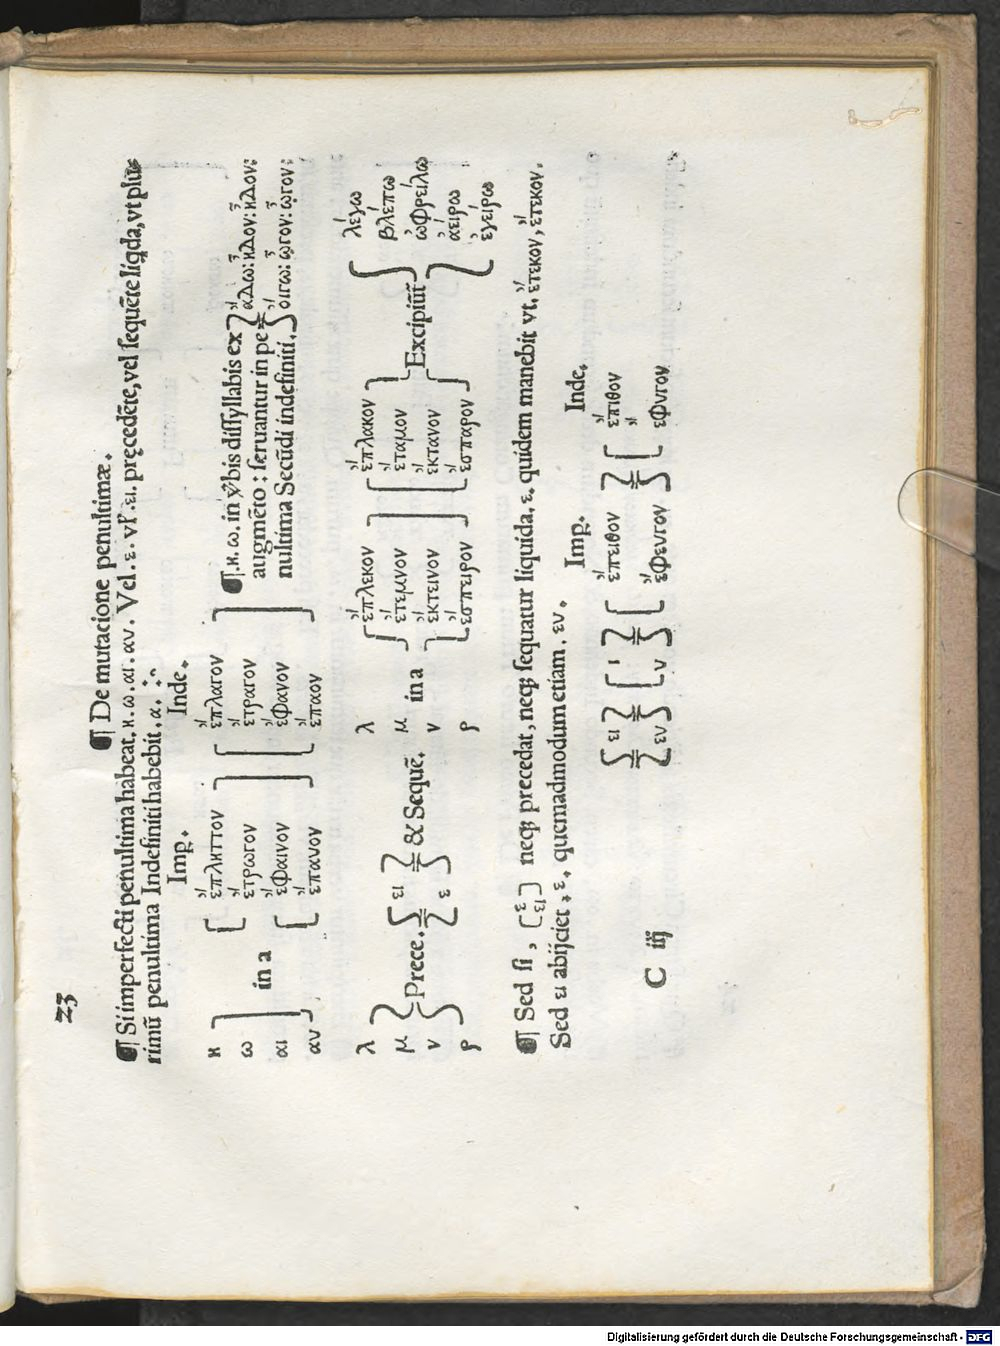 23
¶ De mutacione penultimæ.
¶ Si imperfecti penultima habeat, η. ω. αι. αυ. Vel. ε. vĺ. ει. pręcedēte, vel sequēte líq̨da, vt plu⸗
rimū penultima Indefiniti habebit, α.
Imp̨. Inde.
η ἔπληττον ἔπλαγον
ω ἔτρωγον ἔτραγον
in a
αι ἔφαινον ἔφανον
αυ ἔπαυον ἔπαον
¶. η. ω. in v̊bis dissyllabis ex
augmēto : seruantur in pe⸗
nultima Secūdi indefiniti,
ᾄδω: ᾖδον: ᾖδον:
οἴγω: ᾦγον: ᾦγον:
λ λ ἔπλεκον ἔπλακον λέγω
μ μ ἔτεμνον ἔταμον βλέπω
Prece. ει ε & Sequē. in a Excipiūt̄ ὠφρείλω
ν ν ἔκτεινον ἔκτανον ἀείρω
ρ ρ ἔσπειρον ἔσπαρον ἐγείρω
¶ Sed si, [ε ει] neq; precedat, neq; sequatur liquida, ε. quidem manebit vt, ἔτεκον, ἔτεκον.
Sed ει abijciet, ε, quemadmodum etiam. ευ.
Imp̨. Inde.
ει ι ἔπειθον ἔπιθον
ευ υ ἔφευγον ἔφυγον
C iij
Digitalisierung gefördert durch die Deutsche Forschungsgemeinschaft - DFG